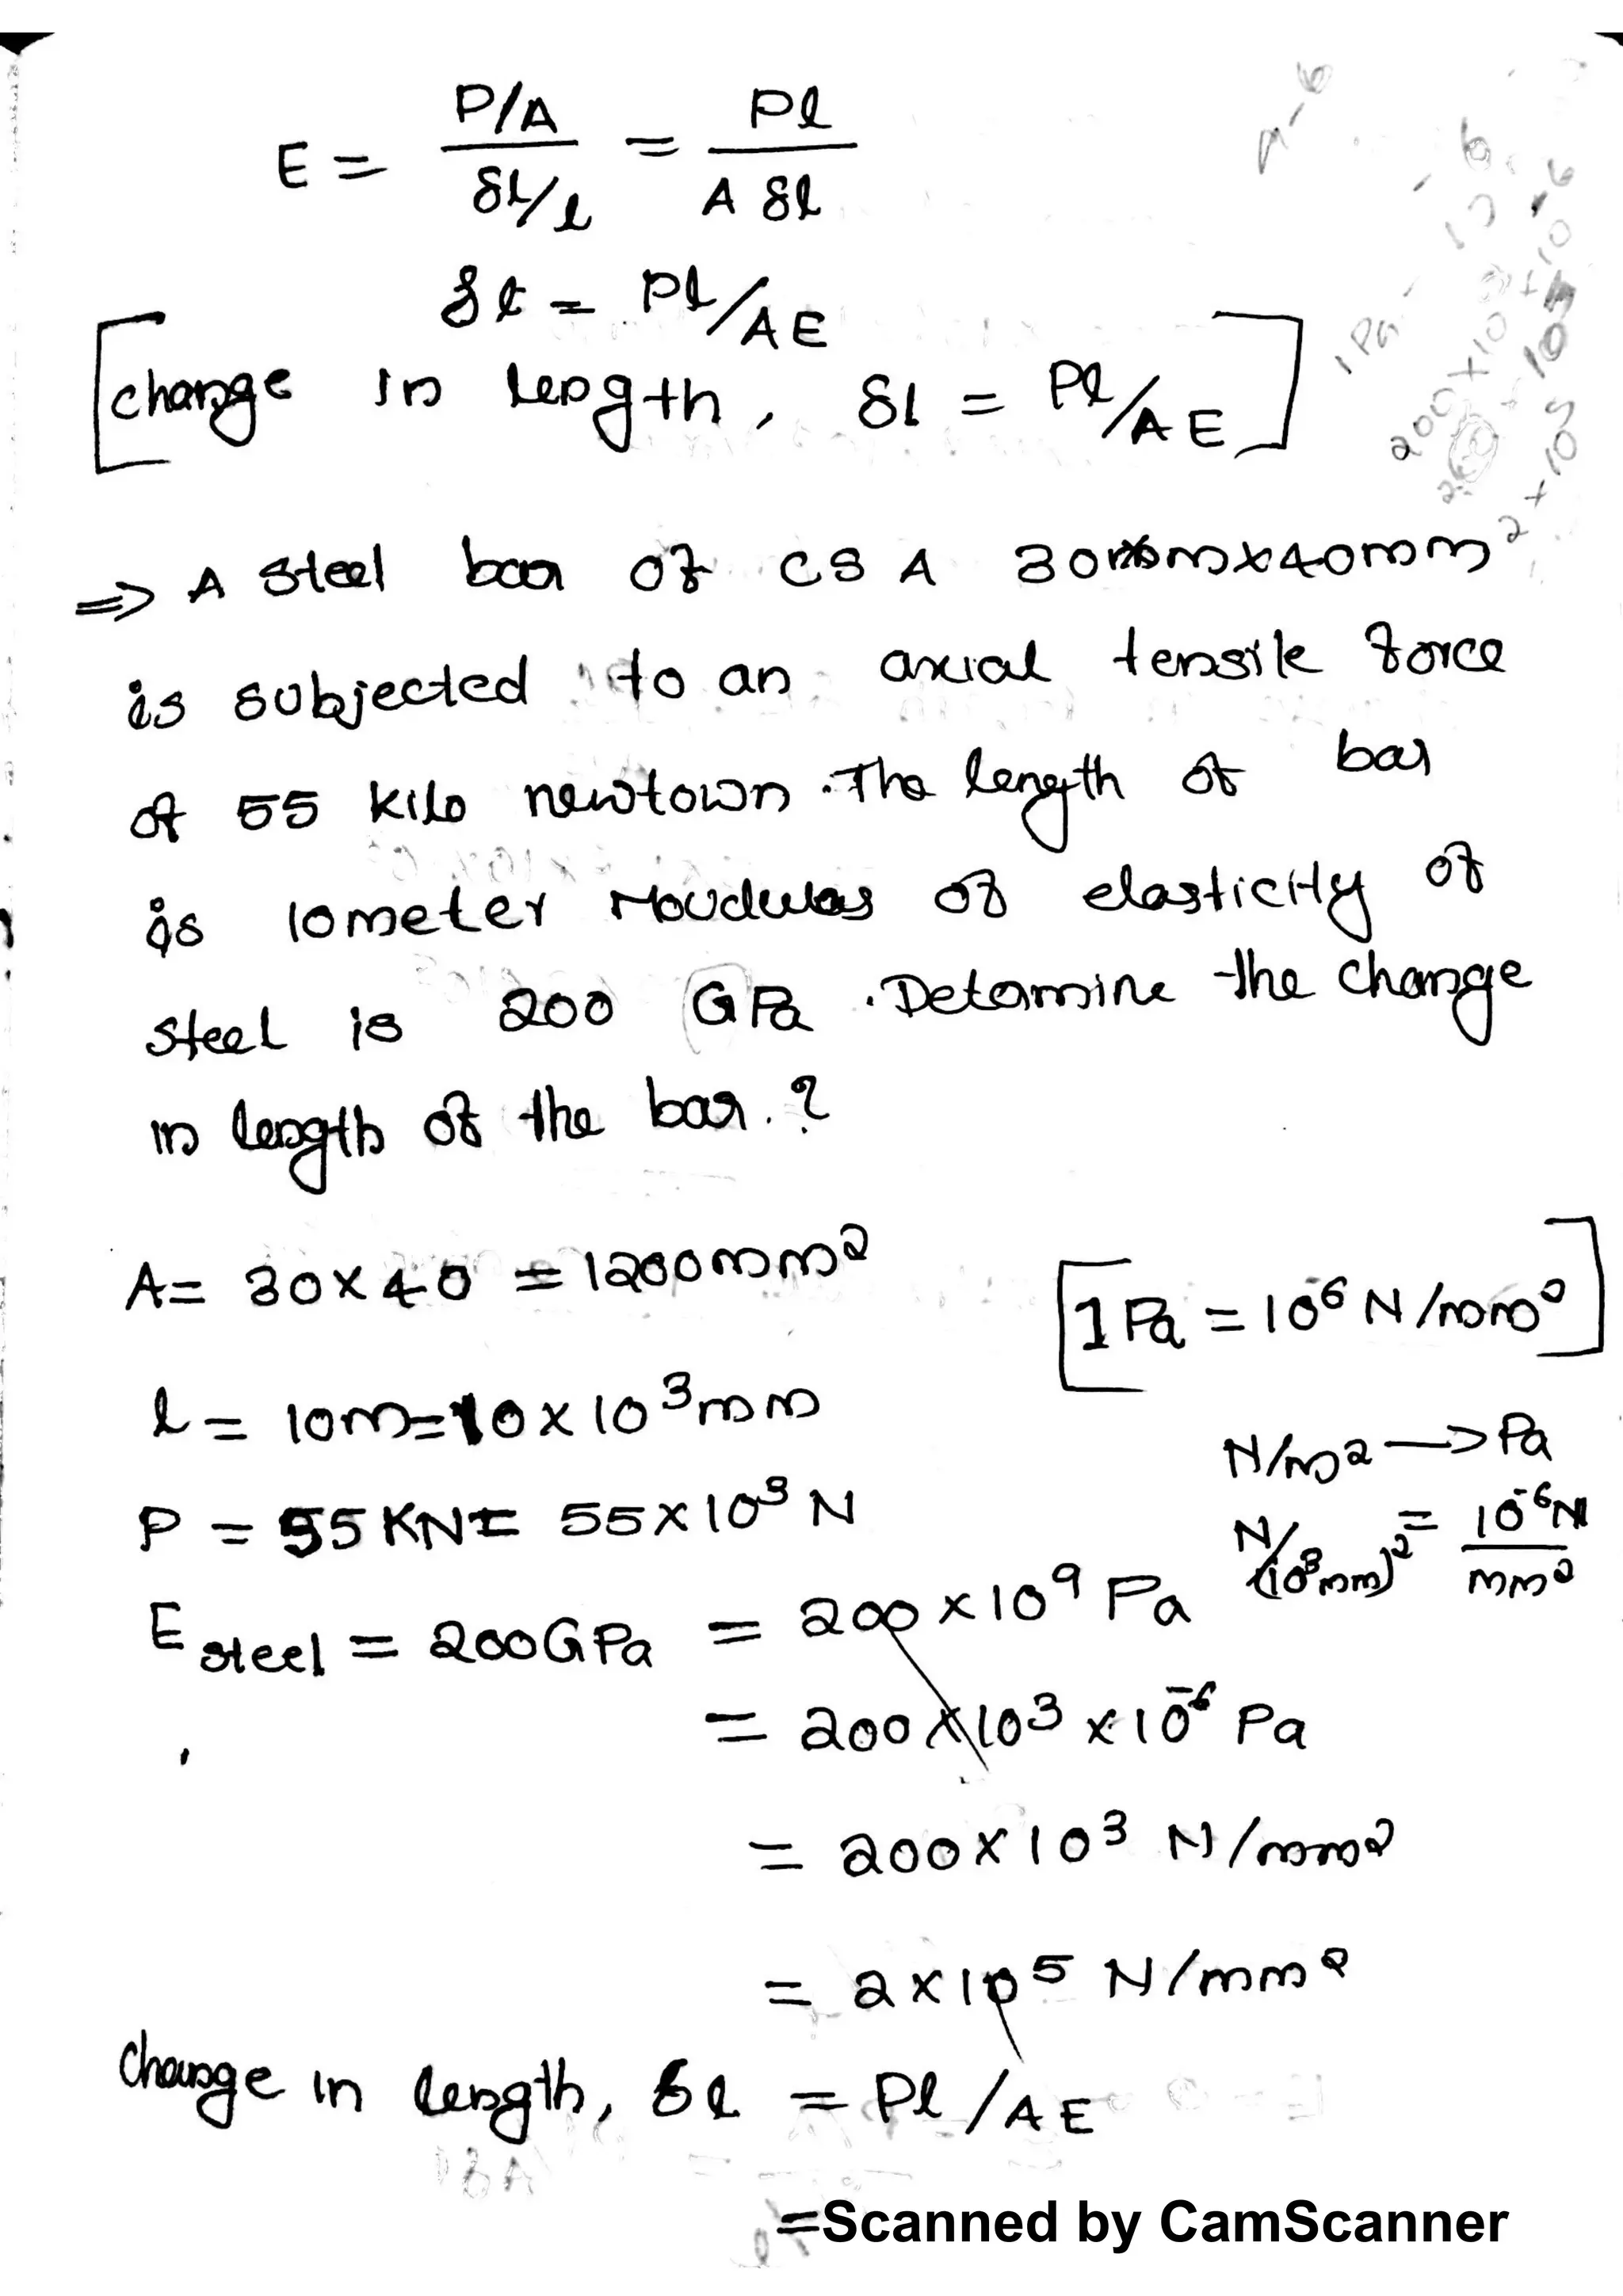 E = P/A / δl/l = Pl / A δl
δl = Pl/AE
[change in length, δl = Pl/AE]
⇒ A steel bar of CSA 30mmx40mm²
is subjected to an axial tensile force
of 55 kilo newtown. The length of bar
is 10meter Moudulas of elasticity of
steel is 200 GPa. Detarmine the change
in length of the bar.?
A = 30x40 = 1200mm²
[1Pa = 10⁻⁶ N/mm²]
l = 10m = 10x10³mm
N/m2 → Pa
P = 55KN = 55x10³ N
N/(10³mm)² = 10⁻⁶N/mm²
E steel = 200GPa = 200x10⁹ Pa
= 200x10³x10⁻⁶ Pa
= 200x10³ N/mm²
= 2x10⁵ N/mm²
change in length, δl = Pl/AE
=Scanned by CamScanner